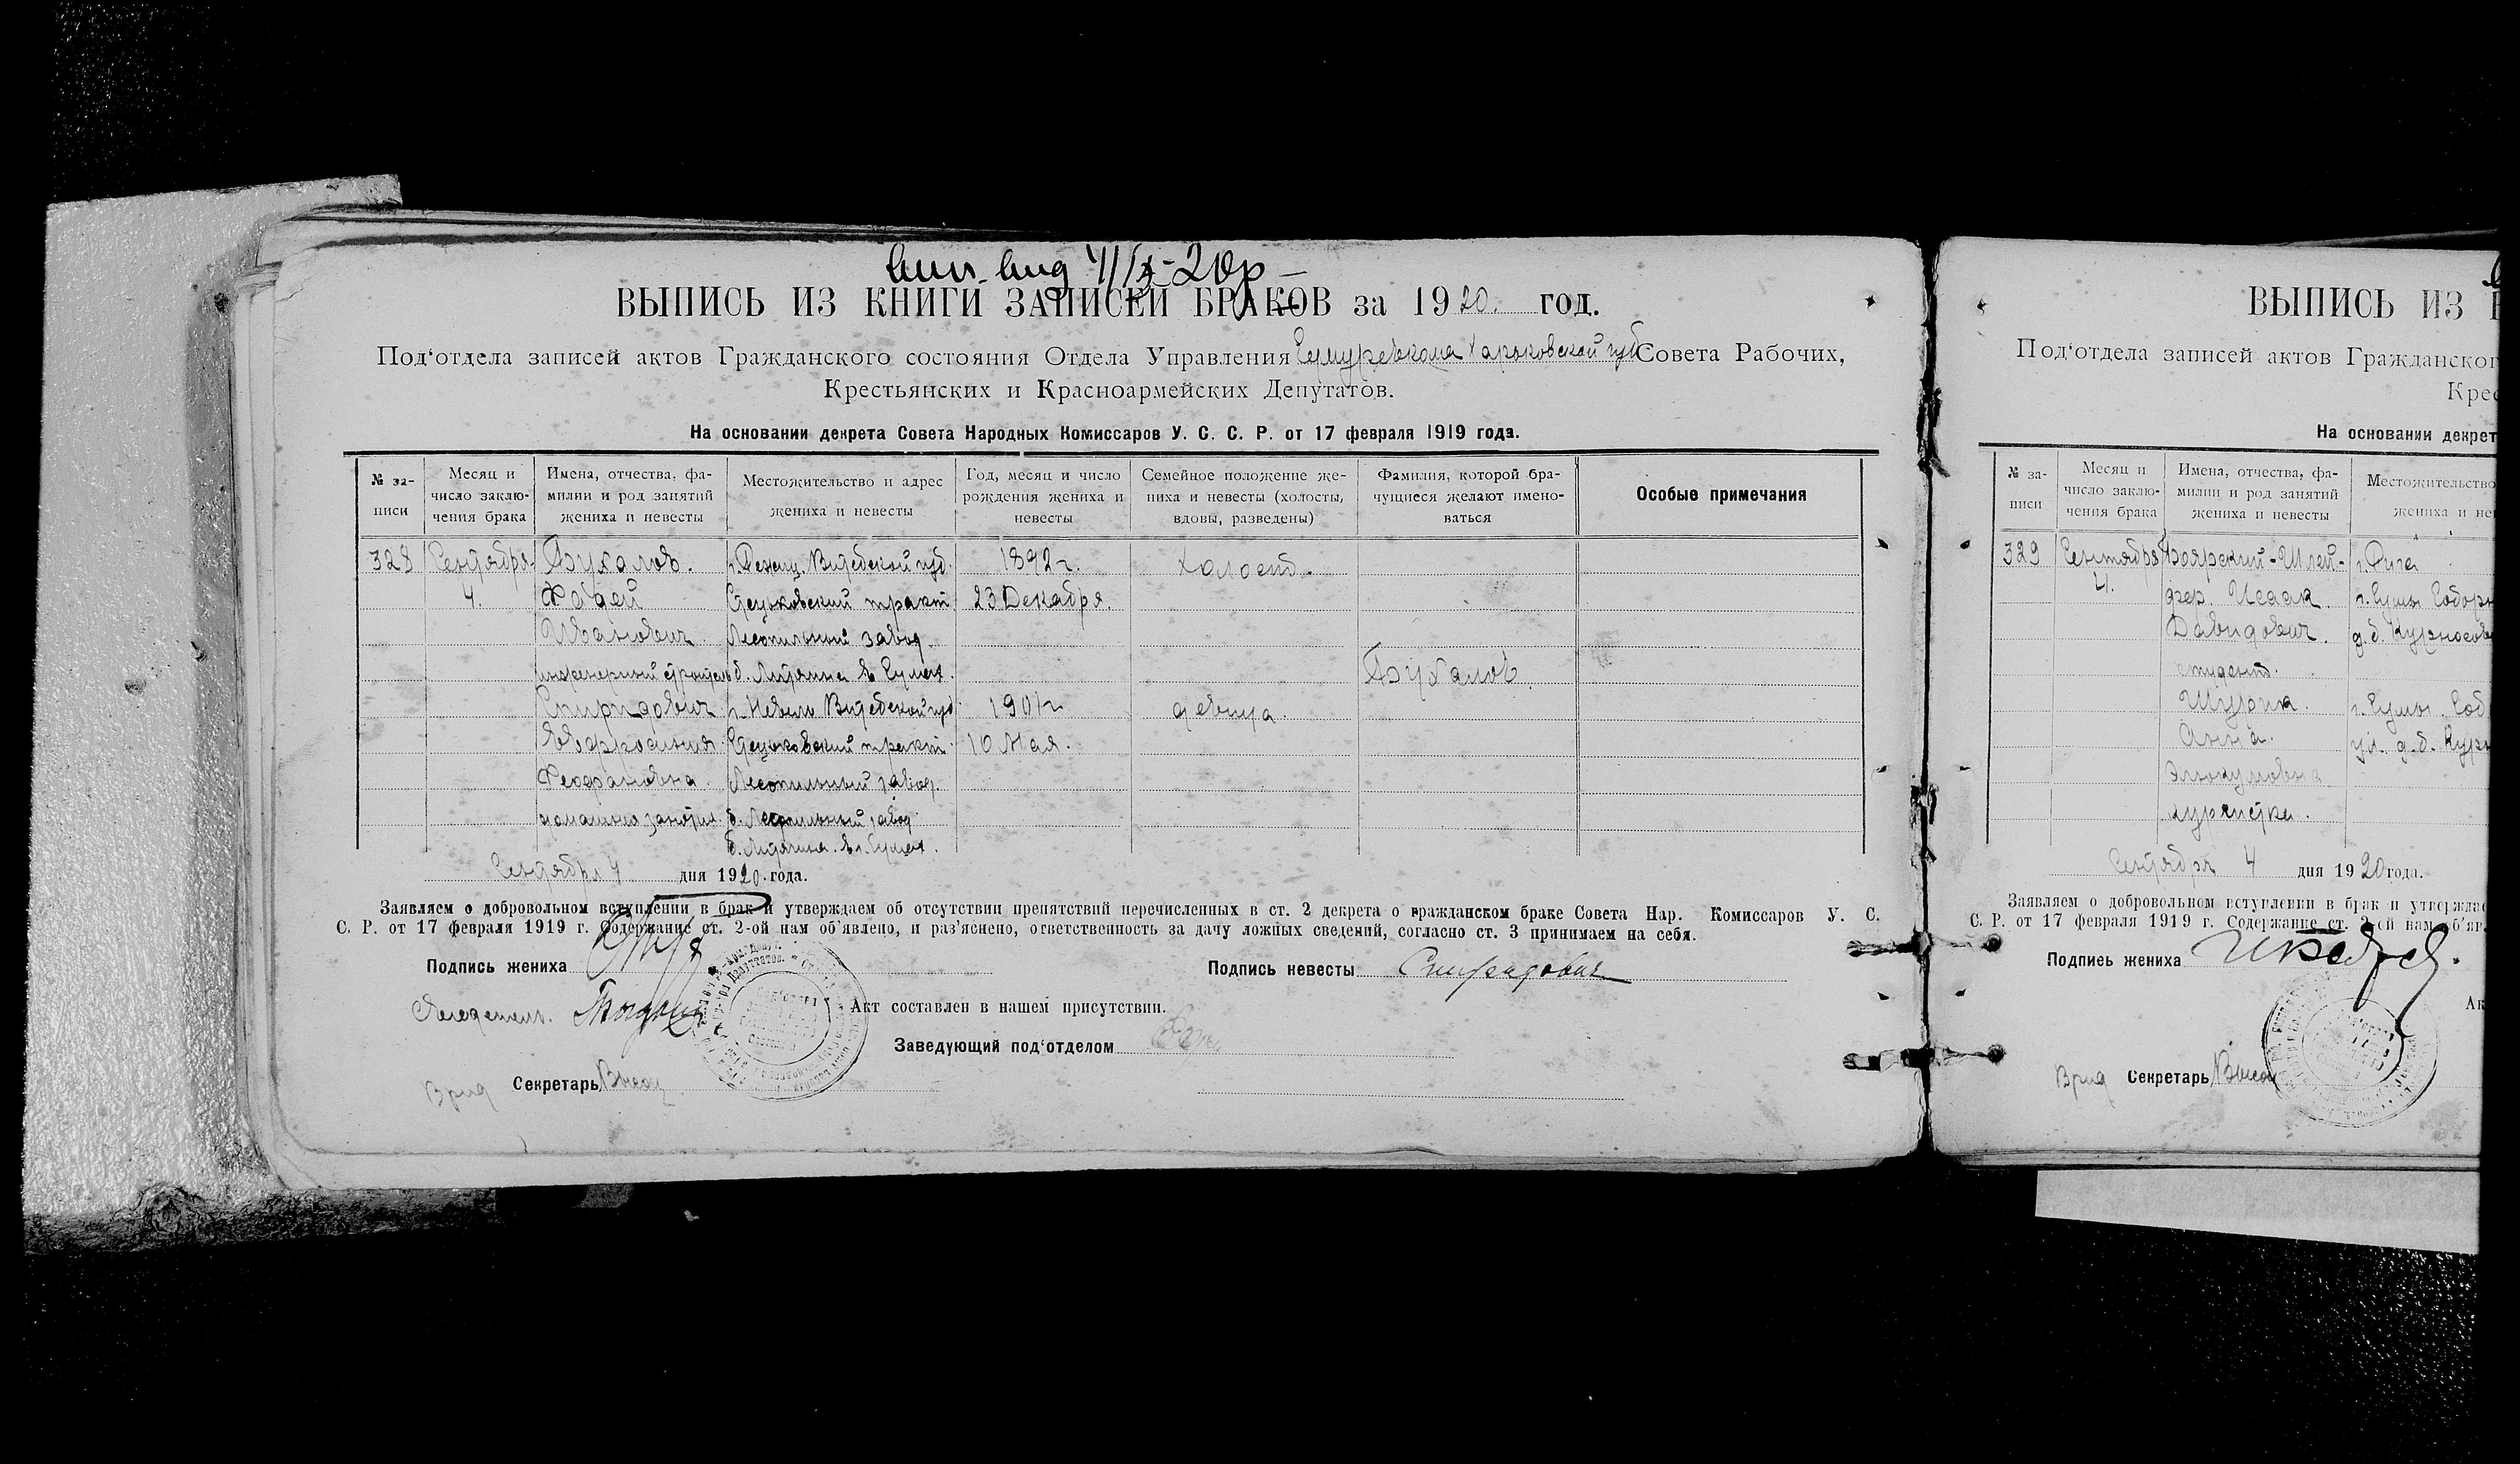 4/IX-20р
ВЫПИСЬ ИЗ КНИГИ ЗАПИСЕЙ БРАКОВ за 1920. год.
Под'отдела записей актов Гражданского состояния Отдела Управления Сумуревкома Харьковской губ Совета Рабочих,
Крестьянских и Красноармейских Депутатов.
На основании декрета Совета Народных Комиссаров У. С. С. Р. от 17 февраля 1919 года.
№ за-
писи
Месяц и
число заклю-
чения брака
Имена, отчества, фа-
милии и род занятий
жениха и невесты
Местожительство и адрес
жениха и невесты
Год, месяц и число
рождения жениха и
невесты
Семейное положение же-
ниха и невесты (холосты,
вдовы, разведены)
Фамилия, которой бра-
чущиеся желают имено-
ваться
Особые примечания
328
Сентября
4.
Фадей
Иванович.
Спиридович
Евфросиния
Феофановна.
г. Режиц. Витебской губ.
тракт
Лесопильный завод
в Сумах.
г. Невель Витебской губ
тракт
Лесопильный завод.
б. Лесопильный завод
в г. Сумах.
1892 г.
23 Декабря.
1901 г
10 Мая.
Холост.
девица.
Сентября 4 дня 1920. года.
Заявляем о добровольном вступлении в брак и утверждаем об отсутствии препятствий перечисленных в ст. 2 декрета о гражданском браке Совета Нар. Комиссаров У. С.
С. Р. от 17 февраля 1919 г. Содержание ст. 2-ой нам об'явлено, и раз'яснено, ответственность за дачу ложных сведений, согласно ст. 3 принимаем на себя.
Подпись жениха
Подпись невесты Спиридович
Свидетель.
Акт составлен в нашем присутствии.
Заведующий под'отделом
Врид Секретарь
ВЫПИСЬ ИЗ
Под'отдела записей актов Гражданског
Крес
На основании декрет
№ за-
писи
Месяц и
число заклю-
чения брака
Имена, отчества, фа-
милии и род занятий
жениха и невесты
Местожительство
жениха и не
329
Сентября
4.
Боярский-Шлей-
фер. Исаак.
Давидович.
студент.
Анна.
курсистка.
г. Рига
г. Сумы Соборн
г. Сумы Соб
Сентября 4 дня 1920 года.
Заявляем о добровольном вступлении в брак и утверждае
С. Р. от 17 февраля 1919 г. Содержание ст. 2-ой нам об'яв
Подпись жениха
Ак
Врид Секретарь